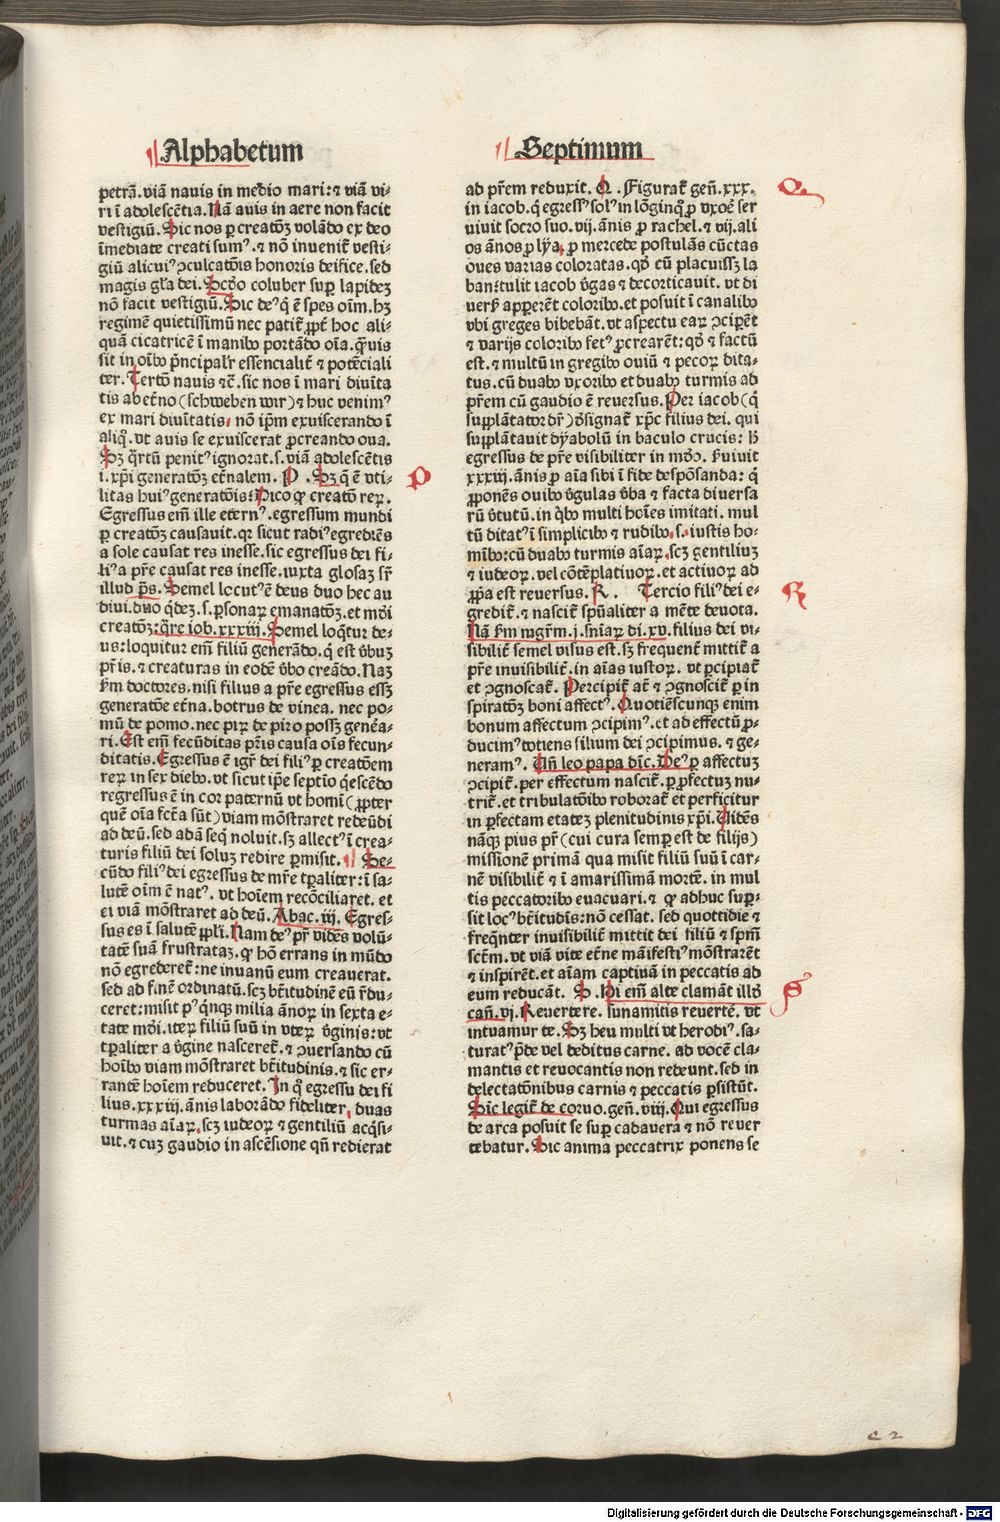 Alphabetum
petrā. viā nauis in medio mari: ⁊ viā vi⸗
ri ī adolescētia. Nā auis in aere non facit
vestigiū. Sic nos ꝑ creatōꝫ volādo ex deo
īmediate creati sumꝰ. ⁊ nō inuenit᷑ vesti⸗
giū alicuiꝰ ꝯculcatōis honoris deifice. sed
magis gl'a dei. Scd̄o coluber suꝑ lapideꝫ
nō facit vestigiū. Sic deꝰ q̄ ē spes oīm. hꝫ
regimē quietissimū nec patit᷑ ꝓpt̄ hoc ali⸗
quā cicatricē ī manibꝰ portādo oīa. q̄uis
sit in oībꝰ p̄ncipalr̄ essencialit̄ ⁊ potēciali
ter. Tertō nauis ⁊c̄. sic nos ī mari diuīta
tis ab et̄no (schweben wir) ⁊ huc venimꝰ
ex mari diuītatis, nō ip̄m exuiscerando ī
aliq̄. vt auis se exuiscerat ꝓcreando oua.
Sꝫ q̄rtū penitꝰ ignorat. s. viā adolescētis
i. xp̄i generatōꝫ et̄nalem. P . Sꝫ q̄ ē vti⸗
litas huiꝰ generatōis: Dico ꝙ creatō reꝝ.
Egressus em̄ ille eternꝰ. egressum mundi
ꝑ creatōꝫ causauit. qꝛ sicut radiꝰ egrediēs
a sole causat res inesse. sic egressus dei fi⸗
liꝰ a pr̄e causat res inesse. iuxta glosaꝫ sr̄
illud p̄s. Semel locutꝰ ē deus duo hec au
diui. duo q̄deꝫ. s. ꝑsonaꝝ emanatōꝫ. et mōi
creatōꝫ: q̄re iob. xxxiij. Semel loq̄tur de⸗
us: loquitur em̄ filiū generādo. q̄ est v̄buꝫ
pr̄is. ⁊ creaturas in eodē v̄bo creādo. Naꝫ
ẜm doctores. nisi filius a pr̄e egressus essꝫ
generatōe et̄na. botrus de vinea. nec po⸗
mū de pomo. nec piꝝ de piro possꝫ genēa⸗
ri. Est em̄ fecūditas pr̄is causa oīs fecun⸗
ditatis. Egressus ē igr̄ dei filiꝰ ꝑ creatōem
reꝝ in sex diebꝰ. vt sicut ip̄e septīo q̄escēdo
regressus ē in cor paternū vt homī (ꝓpter
quē oīa fct̄a sūt) viam mōstraret redeūdi
ad deū. sed adā seq̄ noluit. sꝫ allectꝰ ī crea⸗
turis filiū dei soluꝫ redire ꝑmisit. Se⸗
cūdo filiꝰ dei egressus de mr̄e tꝑaliter: ī sa⸗
lutē oīm ē natꝰ. vt hoīem recōciliaret. et
ei viā mōstraret ad deū. Abac. iij. Egres⸗
sus es ī salutē ppl̄i. Nam deꝰ pr̄ vidēs volū⸗
tatē suā frustrataꝫ. ꝙ hō errans in mūdo
nō egrederet᷑: ne inuanū eum creauerat.
sed ad finē ordinatū. scꝫ bt̄itudinē eū r̄du⸗
ceret: misit pꝰ q̄nqꝫ milia ānoꝝ in sexta e⸗
tate mōi. iteꝝ filiū suū in vteꝝ v̄ginis: vt
tꝑaliter a v̄gine nasceret᷑. ⁊ ꝯuersando cū
hoībꝰ viam mōstraret bt̄itudinis. ⁊ sic er⸗
rantē hoīem reduceret. In q̄ egressu dei fi
lius. xxxiij. ānis laborādo fideliter, duas
turmas aīaꝝ. scꝫ iudeoꝝ ⁊ gentiliū acq̄si⸗
uit. ⁊ cuꝫ gaudio in ascēsione qn̄ redierat
P
Septimum
ad pr̄em reduxit. Q . Figurat᷑ gen̄. xxx.
in iacob. q̄ egressꝰ solꝰ in lōginqꝰ ꝓ vxoē ser
uiuit socro suo. vij. ānis ꝓ rachel. ⁊ vij. ali
os ānos ꝓ lya, ꝓ mercede postulās cūctas
oues varias coloratas. qd̄ cū placuissꝫ la
ban: tulit iacob v̄gas ⁊ decorticauit. vt di
uerẜ apperēt coloribꝰ. et posuit ī canalibꝰ
vbi greges bibebāt. vt aspectu eaꝝ ꝯciperēt
⁊ varijs coloribꝰ fetꝰ ꝓcrearēt: qd̄ ⁊ factū
est. ⁊ multū in gregibꝰ ouiū ⁊ pecoꝝ dita⸗
tus. cū duabꝰ vxoribꝰ et duabꝰ turmis ad
pr̄em cū gaudio ē reuersus. Per iacob (q̄
supplātator dr̄) d̄signat᷑ xp̄c filius dei. qui
supplātauit dyabolū in baculo crucis: H̄
egressus de pr̄e visibiliter in mōo. ẜuiuit
xxxiij. ānis ꝓ aīa sibi ī fide despōsanda: q̄
ꝓponēs ouibꝰ v̄gulas v̄ba ⁊ facta diuersa
rū v̄tutū. in q̄bꝰ multi hoīes imitati. mul
tū ditatꝰ ī simplicibꝰ ⁊ rudibꝰ. s. iustis ho⸗
mībꝰ: cū duabꝰ turmis aīaꝝ. scꝫ gentiliuꝫ
⁊ iudeoꝝ. vel cōtēplatiuoꝝ. et actiuoꝝ ad
ꝓp̄a est reuersus. R . Tercio filiꝰ dei e⸗
gredit᷑. ⁊ nascit᷑ sp̄ualiter a mēte deuota.
Nā ẜm mgr̄m. j. sn̄iaꝝ di. xv. filius dei vi⸗
sibilit̄ semel visus est. sꝫ frequent̄ mittit᷑ a
pr̄e inuisibilit̄. in aīas iustoꝝ. vt ꝑcipiat᷑
et ꝯgnoscat᷑. Percipit᷑ at̄ ⁊ ꝯgnoscit᷑ ꝑ in
spiratōꝫ boni affectꝰ. Quotiēscunqꝫ enim
bonum affectum ꝯcipimꝰ. et ad effectū ꝓ⸗
ducimꝰ totiens filium dei ꝯcipimus. ⁊ ge⸗
neramꝰ. Un̄ leo papa dīc. Deꝰ ꝑ affectuꝫ
ꝯcipit᷑. per effectum nascit᷑. ꝑ ꝓfectuꝫ nu⸗
trit᷑. et tribulatōībꝰ roborat᷑ et perficitur
in ꝑfectam etateꝫ plenitudinis xp̄i. Vidēs
nāqꝫ pius pr̄ (cui cura semꝑ est de filijs)
missionē primā qua misit filiū suū ī car⸗
nē visibilit̄ ⁊ ī amarissimā mortē. in mul
tis peccatoribꝰ euacuari. ⁊ ꝙ adhuc suꝑ⸗
sit locꝰ bt̄itudīs: nō cessat. sed quottidie ⁊
freq̄nter inuisibilit̄ mittit dei filiū ⁊ sp̄m
sct̄m. vt viā vite et̄ne māifestiꝰ mōstrarēt
⁊ inspirēt. et aīam captiuā in peccatis ad
eum reducāt. S . Hi em̄ alte clamāt illd̄
cañ. vj. Reuertere. sunamitis reuertē. vt
intuamur te. Sꝫ heu multi vt herodiꝰ. sa⸗
turatꝰ p̄de vel deditus carne. ad vocē cla⸗
mantis et reuocantis non redeunt. sed in
delectatōnibus carnis ⁊ peccatis ꝑsistūt.
Sic legit᷑ de coruo. gen̄. viij. Qui egressus
de arca posuit se suꝑ cadauera ⁊ nō reuer
tebatur. Sic anima peccatrix ponens se
Q
R
S
c 2
Digitalisierung gefördert durch die Deutsche Forschungsgemeinschaft - DFG